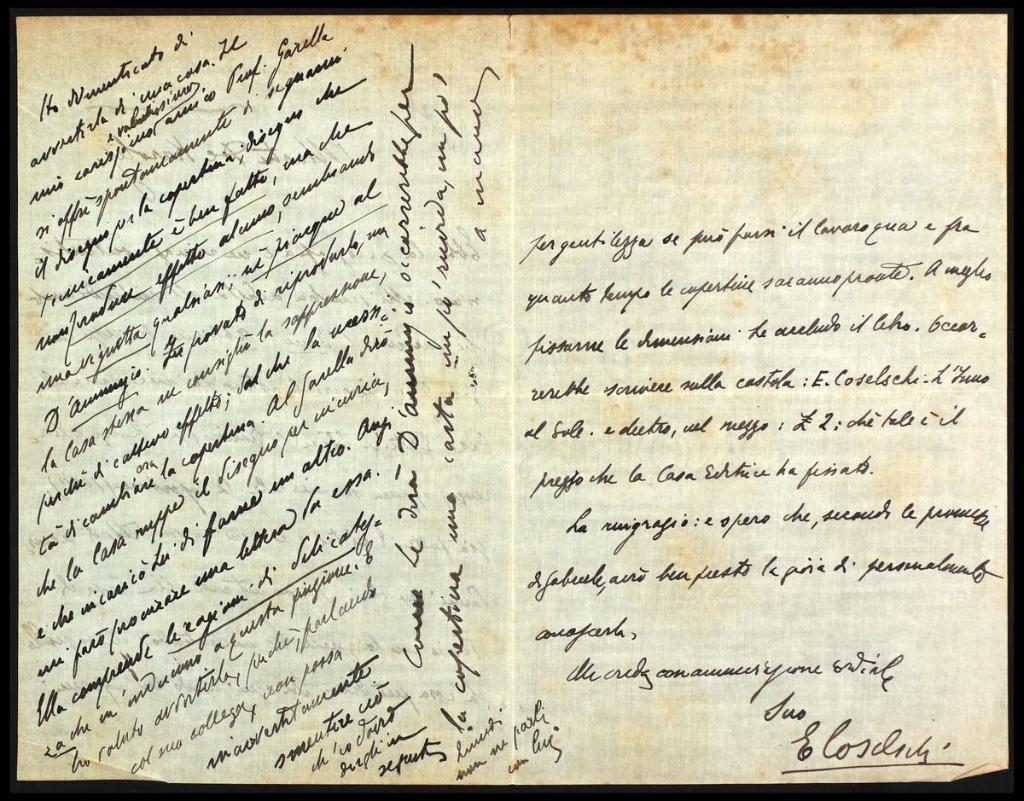 Ho dimenticato di
avvertirla di una cosa. Il
mio carissimo e valentissimo amico Prof. Garella
si offrì spontaneamente di segnarmi
il disegno per la copertina; disegno che
tecnicamente è ben fatto, ma che
non produce effetto alcuno, sembrando
una vignetta qualsiasi; nè piacque al
D'Annunzio. Fu provato di riprodurlo, ma
la Casa stessa ne consigliò la soppressione,
perchè di cattivo effetto; dal che la necessi-
tà di cambiare ora la copertina. Al Garella dirò
che la Casa ruppe il disegno per incuria,
e che incaricò Lei di farne un altro. Anzi
mi farò procurare una lettera da essa.
Ella comprende le ragioni di delicatez-
za che m'inducono a questa finzione. E
ho voluto avvertirla, perchè, parlando
col suo collega, non possa
inavvertitamente
smentire ciò
ch'io dovrò
dirgli in
seguito
Quindi
non ne parli
con lui
Come Le dirà D'Annunzio occorrerebbe per
la copertina una carta un po' ruvida, un po'
a mano
per gentilezza se può farsi il lavoro qua e fra
quanto tempo le copertine saranno pronte. A meglio
fissarne le dimensioni Le accludo il libro. Occor-
rerebbe scrivere sulla costola: E. Coselschi. L'Inno
al Sole. e dietro, nel mezzo: £ 2: chè tale è il
prezzo che la Casa Editrice ha fissato.
La ringrazio: e spero che, secondo le promesse
di Gabriele, avrò ben presto la gioia di personalmente
conoscerla,
Mi creda con ammirazione cordiale
Suo
E Coselschi